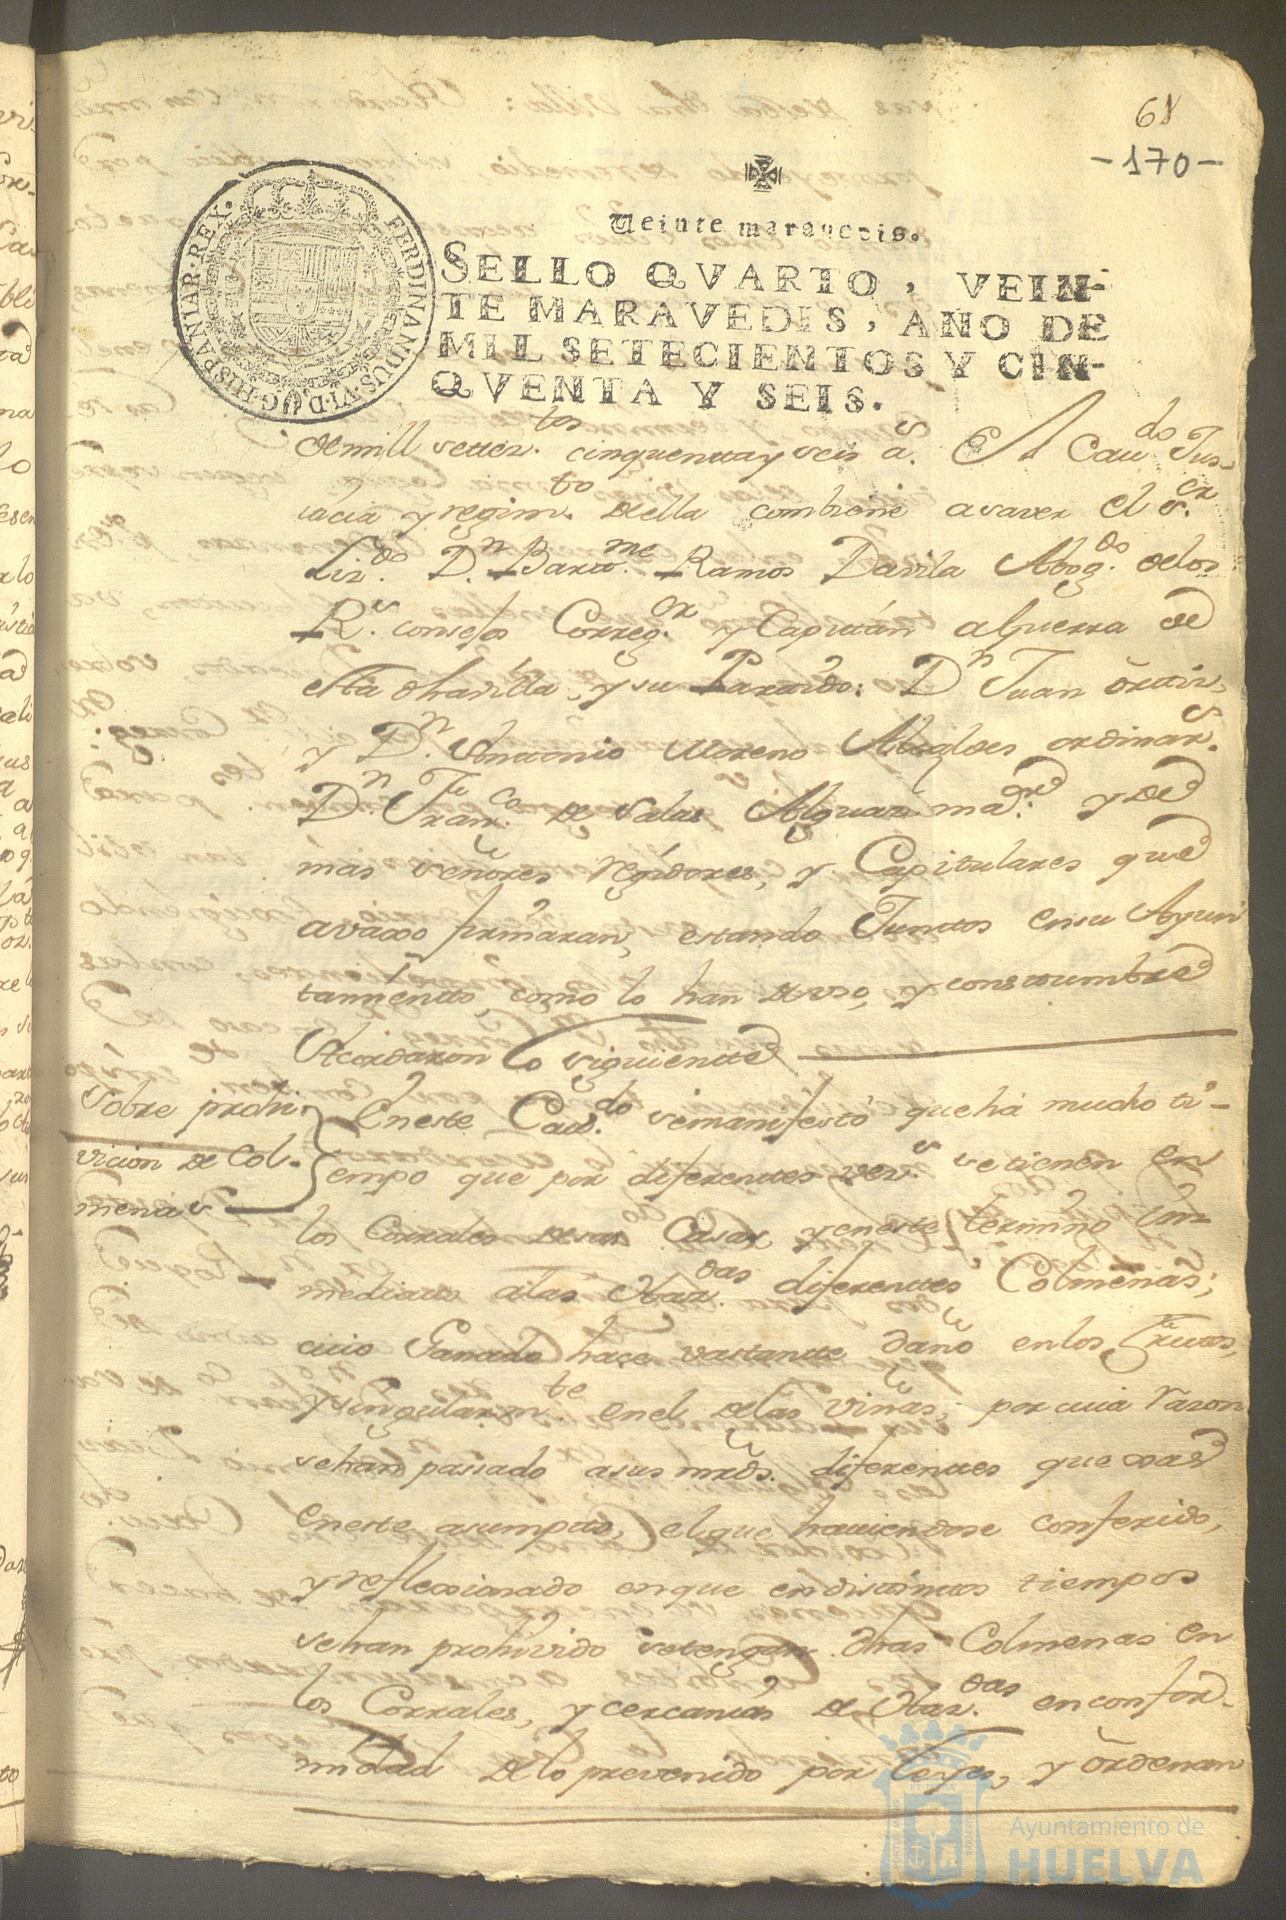 68
-170-
Veinte maravedis.
SELLO QVARTO, VEIN-
TE MARAVEDIS, AÑO DE
MIL SETECIENTOS Y CIN-
QVENTA Y SEIS.
FERDINANDUS·VI·D·G·HISPANIAR·REX·
de mill setez.tos cinquenta y seis a.s El Cau.do Jus-
ticia y regim.to de ella combiene a saver el s.or
Liz.do D.n Barto.me Ramos Davila Abog.do de los
R.s consejos Correg.or y Capitán a guerra de
esta dha villa, y su Partido: D.n Juan Ortiz,
y D.n Antonio Moreno Alcaldes ordinar.s
D.n Fran.co de Salas Alguazil maior y de
mas señores regidores, y Capitulares que
avaxo firmaran, estando Juntos en su Ayun
tamiento como lo han de uso, y constumbre
Acordaron lo siguiente
Sobre prohi-
vicion de Col-
menas
En este Cau.do se manifestó que há mucho ti-
empo que por diferentes vez.s se tienen en
los Corrales de sus Casas, y en este termino im-
mediato a las Otaz.das diferentes Colmenas;
cuio Ganado hace vastante daño en los frutos,
y singularm.te en el de las viñas; por cuia razon
se han passado a sus mrds. diferentes quexas
en este asumpto, el que haviendose conferido,
y reflexionado en que en distintos tiempos
se han prohivido se tengan dhas Colmenas en
los Corrales, y cercanias de Otaz.das en confor-
midad de lo prevenido por Leyes, y ordenan
Ayuntamiento de
HUELVA